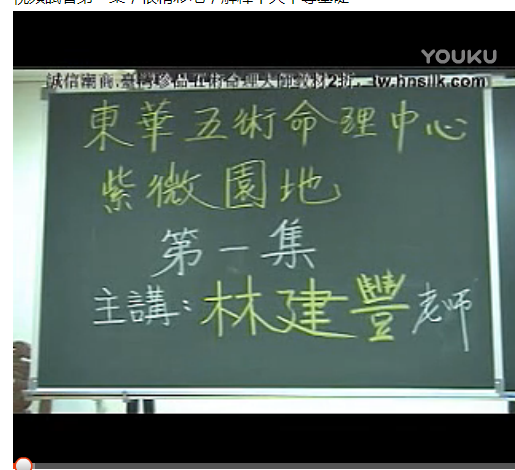 YOUKU
誠信潮商.臺灣珍品五術命理大師教材2折, tw.hpsilk.com
東華五術命理中心
紫微園地
第一集
主講:林建豐老師